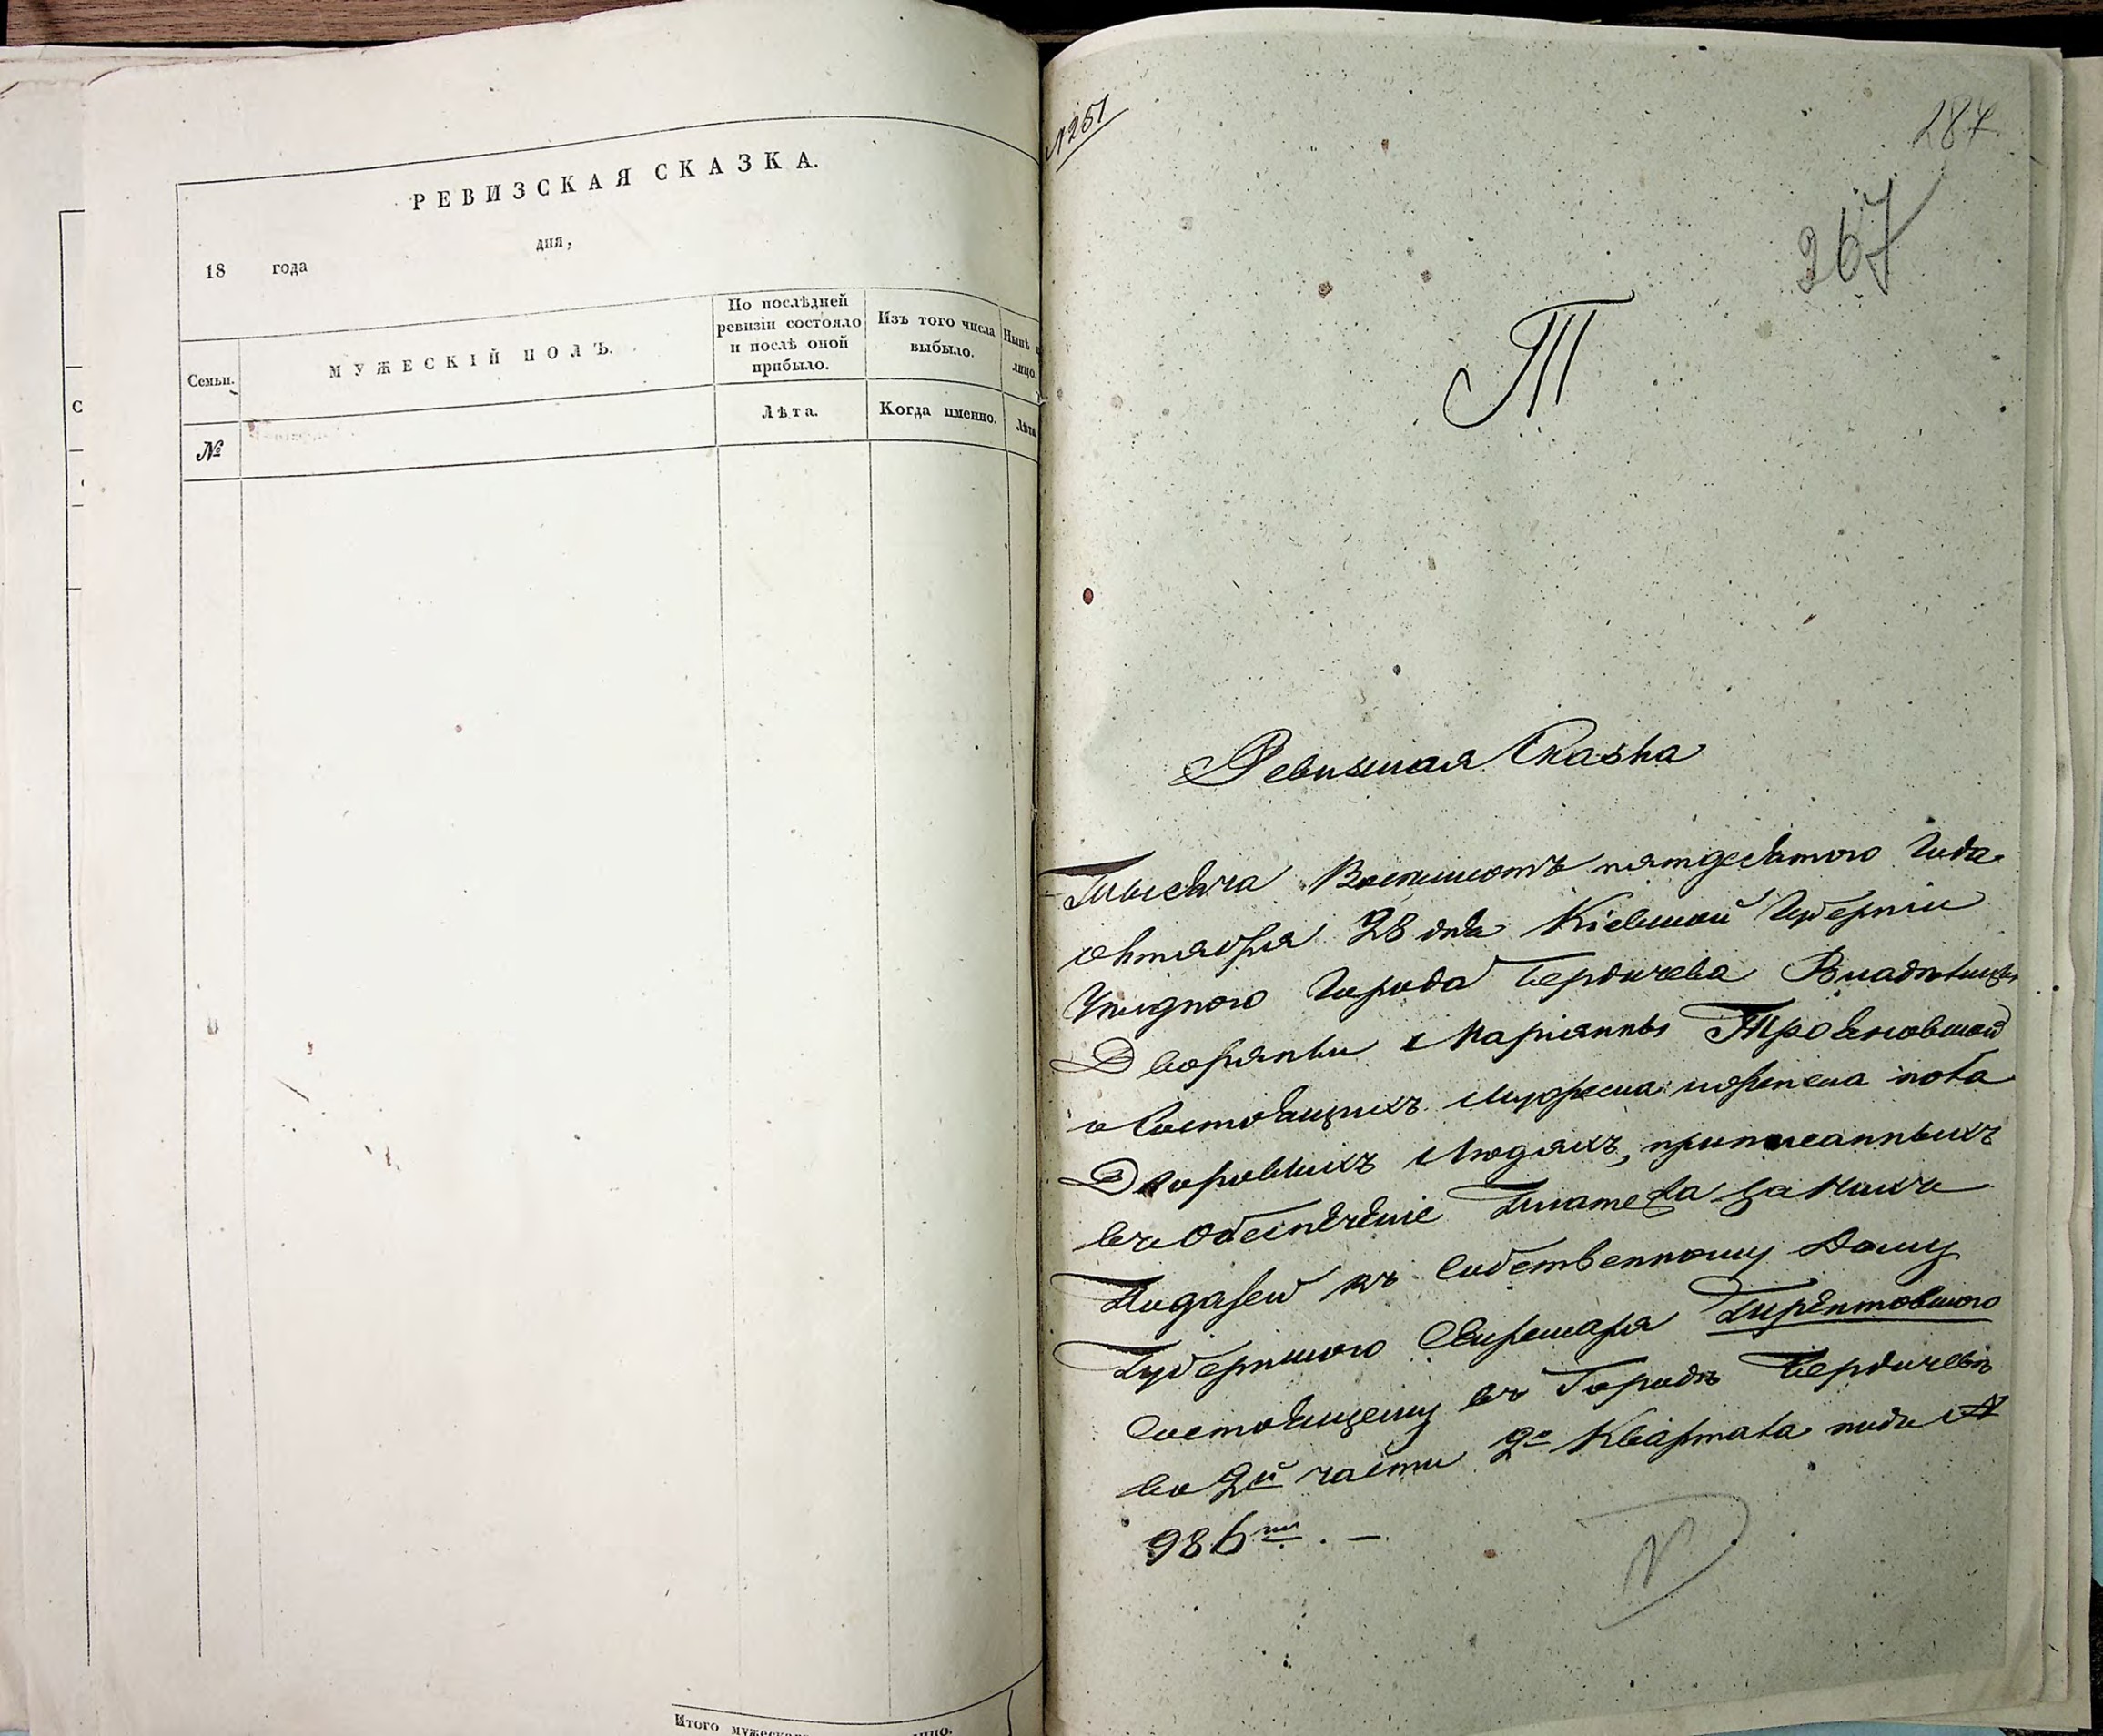 РЕВИЗСКАЯ СКАЗКА.
18 года дня,
Семьи.
МУЖЕСКІЙ ПОЛЪ.
По послѣдней
ревизіи состояло
и послѣ оной
прибыло.
Изъ того числа
выбыло.
Нынѣ
лицо.
№
Лѣта.
Когда именно.
Лѣта
Итого
№ 251
284
267
Т
Ревизская Сказка
Тысяча Восемьсотъ пятдесятого Года
октября 28 дня Кіевской Губерніи
Уѣздного Города Бердичева
Дворянки Маріянны Трояновской
о Состоящихъ мужеска пола
Дворовыхъ Людяхъ, приписанныхъ
въ Обеспеченіе Платежа за Нихъ
Податей къ Собственному Дому
Губернского Секретаря
Состоящему въ Городѣ Бердичевѣ
во 2й части 2го Квартала подъ №
986мъ. —